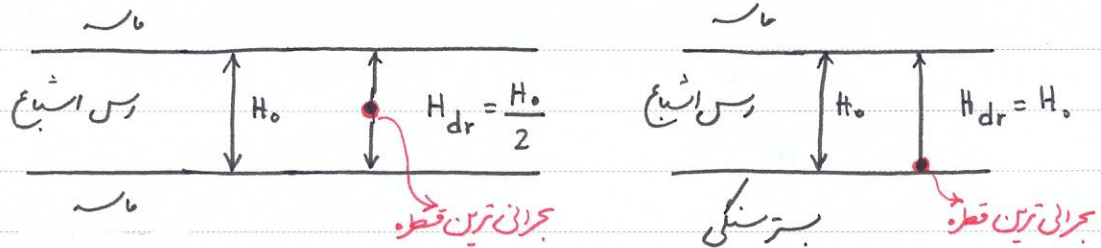 ماسه
رس اشباع
H₀
H_dr = H₀/2
ماسه
بحرانی ترین قطره
ماسه
رس اشباع
H₀
H_dr = H₀
بستر سنگی
بحرانی ترین قطره